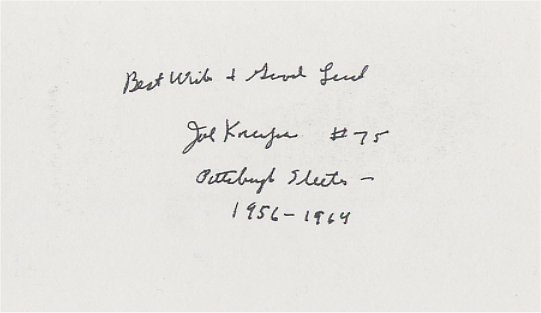 Best Wishes & Good Luck
Joe Krupa #75
Pittsburgh Steelers -
1956-1964